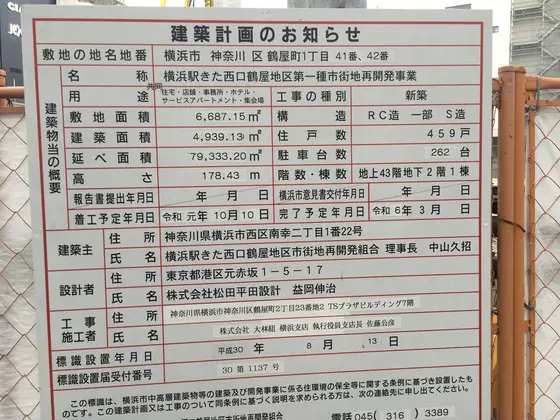 建築計画のお知らせ
敷地の地名地番 横浜市 神奈川 区 鶴屋町1丁目 41番、42番
建築物当の概要
名称 横浜駅きた西口鶴屋地区第一種市街地再開発事業
用途 共同住宅・店舗・事務所・ホテル・サービスアパートメント・集会場 工事の種別 新築
敷地面積 6,687.15㎡ 構造 RC造 一部 S造
建築面積 4,939.13㎡ 住戸数 459戸
延べ面積 79,333.20㎡ 駐車台数 262台
高さ 178.43 m 階数・棟数 地上43階地下2階1棟
報告書提出年月日 年 月 日 横浜市意見書交付年月日 年 月 日
着工予定年月日 令和 元年10月10日 完了予定年月日 令和 6年 3月 日
建築主 住所 神奈川県横浜市西区南幸二丁目1番22号
氏名 横浜駅きた西口鶴屋地区市街地再開発組合 理事長 中山久招
設計者 住所 東京都港区元赤坂1-5-17
氏名 株式会社松田平田設計 益岡伸治
工事施工者 住所 神奈川県横浜市神奈川区鶴屋町2丁目23番地2 TSプラザビルディング7階
氏名 株式会社 大林組 横浜支店 執行役員支店長 佐藤公彦
標識設置年月日 平成30 年 8 月 13 日
標識設置届受付番号 30 第 1137 号
この標識は、横浜市中高層建築物等の建築及び開発事業に係る住環境の保全等に関する条例に基づき設置したものです。この建築計画又は工事のついて同条例に基づく説明を求められる方は、次の連絡先に申し出てください。
電話045( 316 )3389